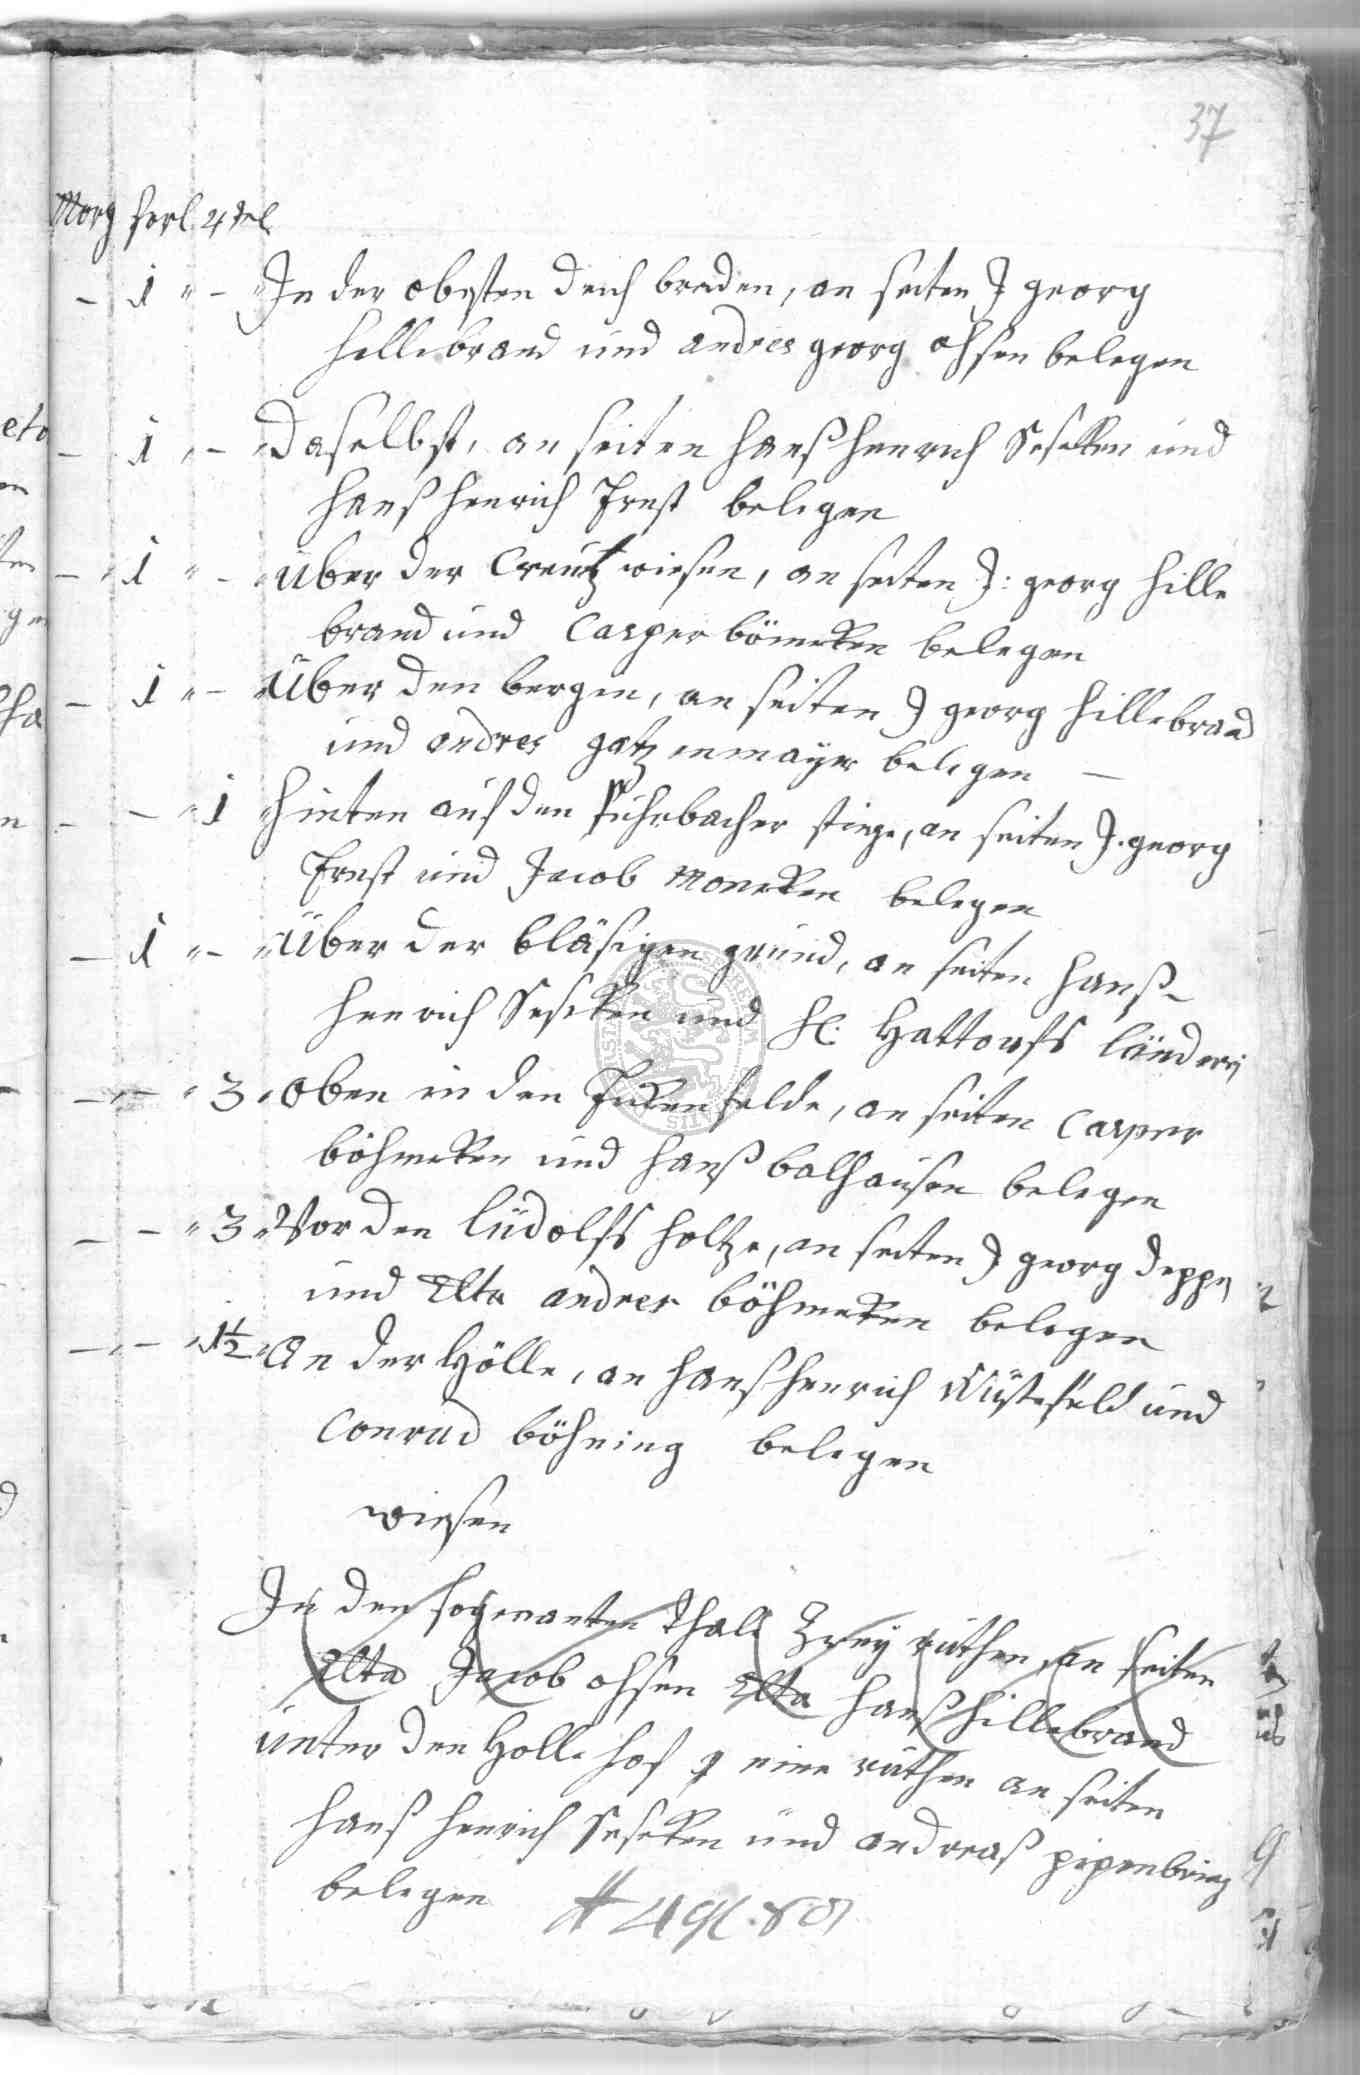 37
Morg forl. 4tel
– 1 " – " In der obesten deich breden, an seiten J georg
Hillebrand und andres georg ohsen belegen
– 1 " – " Daselbst, an seiten Hanß Henrich Seseken und
Hanß Henrich Ernst belegen
– " 1 " – " Über der Creutz wiesen, an seiten J: georg Hille
brand und Casper bömeken belegen
– 1 " – " Über den bergen, an seiten J georg Hillebrand
und andres gatzenmayer belegen –
– – " 1 Hinten auf den Fuhrbacher stiege, an seiten J. georg
Ernst und Jacob Moneken belegen
– 1 " – " Über der bläsigen grund, an seiten Hanß-
Henrich Seseken und H: Hattorfs länderei
– " – " 3 " Oben in den felde, an seiten Casper
böhmeken und Hanß balhausen belegen
– – " 3 " Vor den lüdolfs holtze, an seiten J georg deppe
und Elta andres böhmeken belegen
– " – " 1½ " An der Hölle, an Hanß Henrich Wüstefeld und
Conrad böhning belegen
wiesen
In den sogenanten Thale Zwey ruthen, an seiten
Elta Jacob ohsen Elta Hanß Hillebrand
unter den Holle hof eine ruthen an seiten
Hanß Henrich Seseken und andreaß pipenbring
belegen